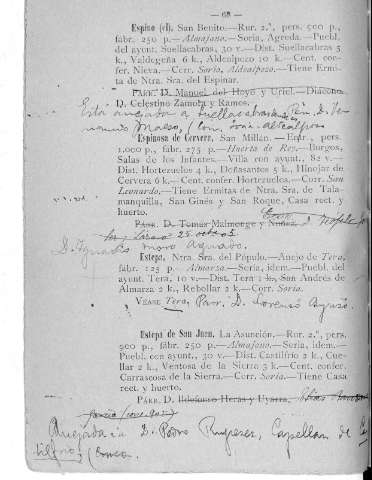 — 68 —
Espino (el). San Benito.—Rur. 2.ª, pers. 500 p.,
fabr. 250 p.—Almajano.—Soria, Agreda.—Puebl.
del ayunt. Suellacabras, 30 v.—Dist. Suellacabras 5
k., Valdegeña 6 k., Aldealpozo 10 k.—Cent. conf.
fer. Nieva.—Corr. Soria, Aldealpozo.—Tiene Ermi-
ta de Ntra. Sra. del Espinar.
PARR. D. Manuel del Hoyo y Uriel.—Diácono
D. Celestino Zamora y Ramos.
Esta anejada a Suellacabras, D.
Maeso, (Corr. Soria
Espinosa de Cervera, San Millán.—Entr., pers.
1.000 p., fabr. 275 p.—Huerta de Rey.—Burgos,
Salas de los Infantes.—Villa con ayunt., 82 v.—
Dist. Hortezuelos 4 k., Doñasantos 5 k., Hinojar de
Cervera 6 k.—Cent. confer. Hortezuelos.—Corr. San
Leonardo.—Tiene Ermitas de Ntra. Sra. de Tala-
manquilla, San Ginés y San Roque, Casa rect. y
huerto.
PARR. D. Tomás Malmonge y
D. Ignacio Moro Aguado.
Estepa, Ntra. Sra. del Pópulo.—Anejo de Tera,
fabr. 125 p.—Almarza.—Soria, idem.—Puebl. del
ayunt. Tera, 10 v.—Dist. Tera 1 k., San Andrés de
Almarza 2 k., Rebollar 2 k.—Corr. Soria.
VÉASE Tera, Parr. D. Lorenzo
Estepa de San Juan, La Asunción.—Rur. 2.ª, pers.
500 p., fabr. 250 p.—Almajano.—Soria, idem.—
Puebl. con ayunt., 30 v.—Dist. Castilfrío 2 k., Cue-
llar 2 k., Ventosa de la Sierra 3 k.—Cent. confer.
Carrascosa de la Sierra.—Corr. Soria.—Tiene Casa
rect. y huerto.
PARR. D. Ildefonso Heras y Uyarra.
Anejada a D. Pedro Capellan de